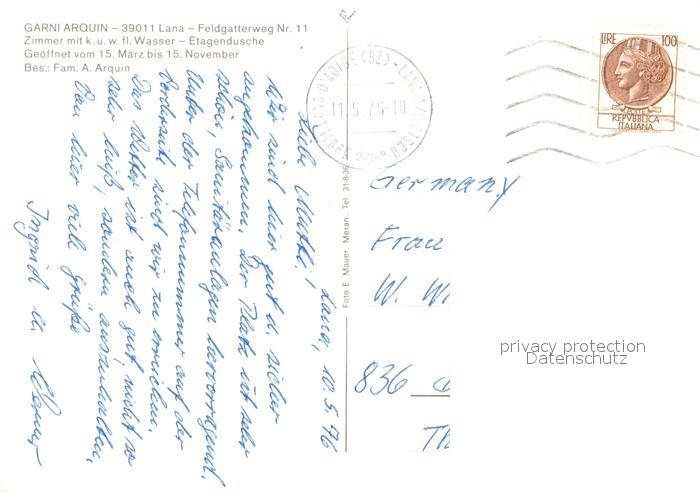 GARNI ARQUIN – 39011 Lana – Feldgatterweg Nr. 11
Zimmer mit k. u. w. fl. Wasser – Etagendusche
Geöffnet vom 15. März bis 15. November
Bes.: Fam. A. Arquin
Lana, 10.5.76
Liebe Mutti!
Wir sind hier gut u. sicher
angekommen. Der Platz ist sehr
schön, Sanitäranlagen hervorragend.
Unter der Telefonnummer auf der
Vorderseite sind wir zu erreichen.
Das Wetter ist auch gut, nicht so
sehr heiß, sondern auszuhalten.
Von hier viele Grüße
Ingrid u.
Foto E. Mauer, Meran. Tel. 31-8-36
11.5.76-18
(BZ) - LANA
LIRE 100
REPVBBLICA
ITALIANA
Germany
Frau
W. W
836
Th
privacy protection
Datenschutz